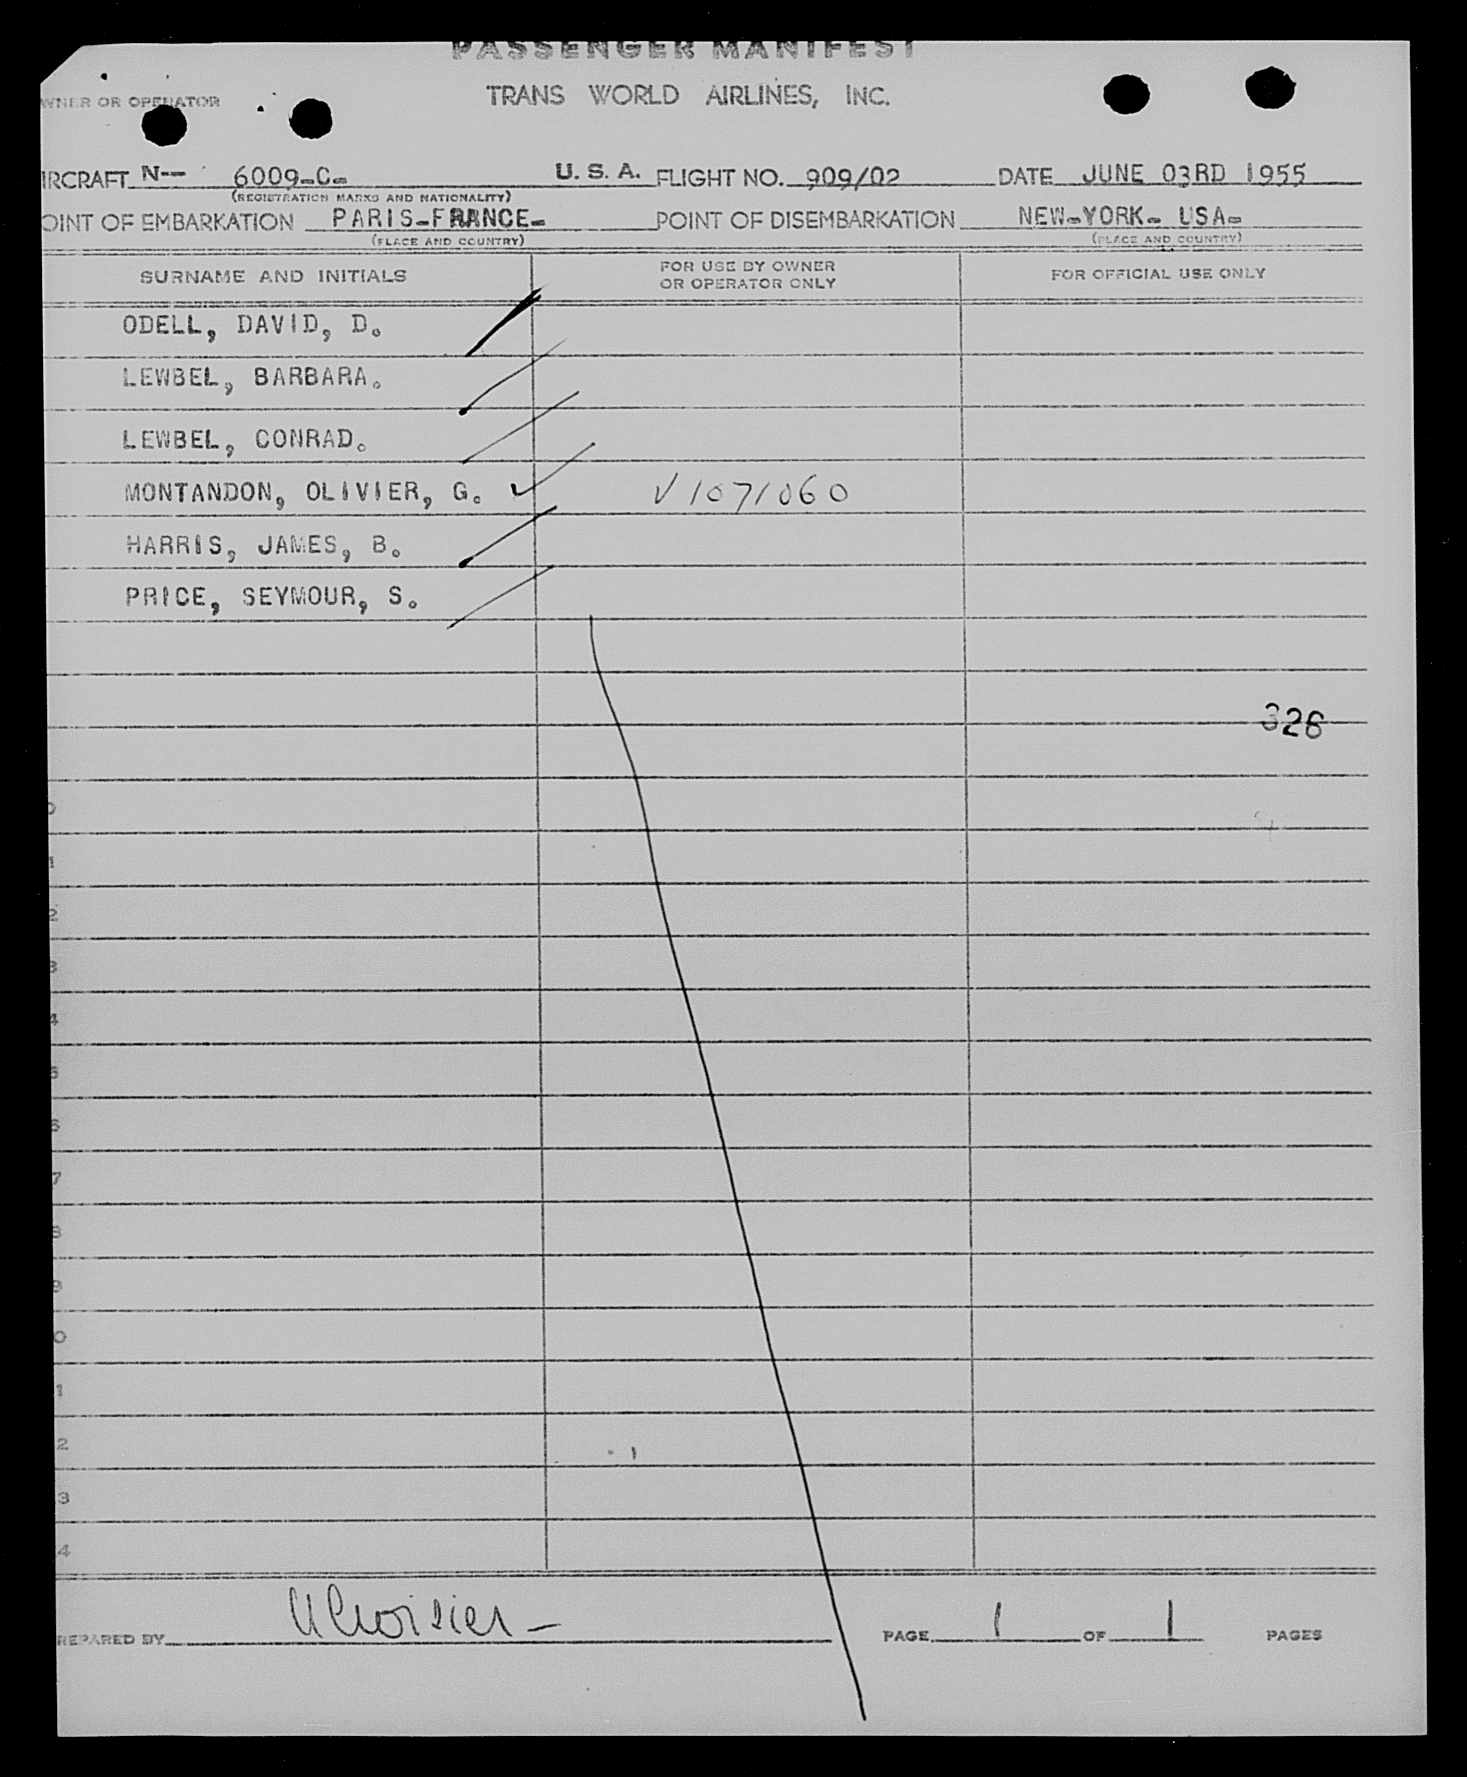 PASSENGER MANIFEST
WNER OR OPERATOR
TRANS WORLD AIRLINES, INC.
IRCRAFT N-- 6009-C- U. S. A. FLIGHT NO. 909/02 DATE JUNE 03RD 1955
(REGISTRATION MARKS AND NATIONALITY)
OINT OF EMBARKATION PARIS-FRANCE- POINT OF DISEMBARKATION NEW-YORK- USA-
(PLACE AND COUNTRY) (PLACE AND COUNTRY)
SURNAME AND INITIALS FOR USE BY OWNER OR OPERATOR ONLY FOR OFFICIAL USE ONLY
ODELL, DAVID, D.
LEWBEL, BARBARA.
LEWBEL, CONRAD.
MONTANDON, OLIVIER, G. V1071060
HARRIS, JAMES, B.
PRICE, SEYMOUR, S.
326
0
1
2
3
4
5
6
7
8
9
0
1
2
3
4
REPARED BY PAGE 1 OF 1 PAGES